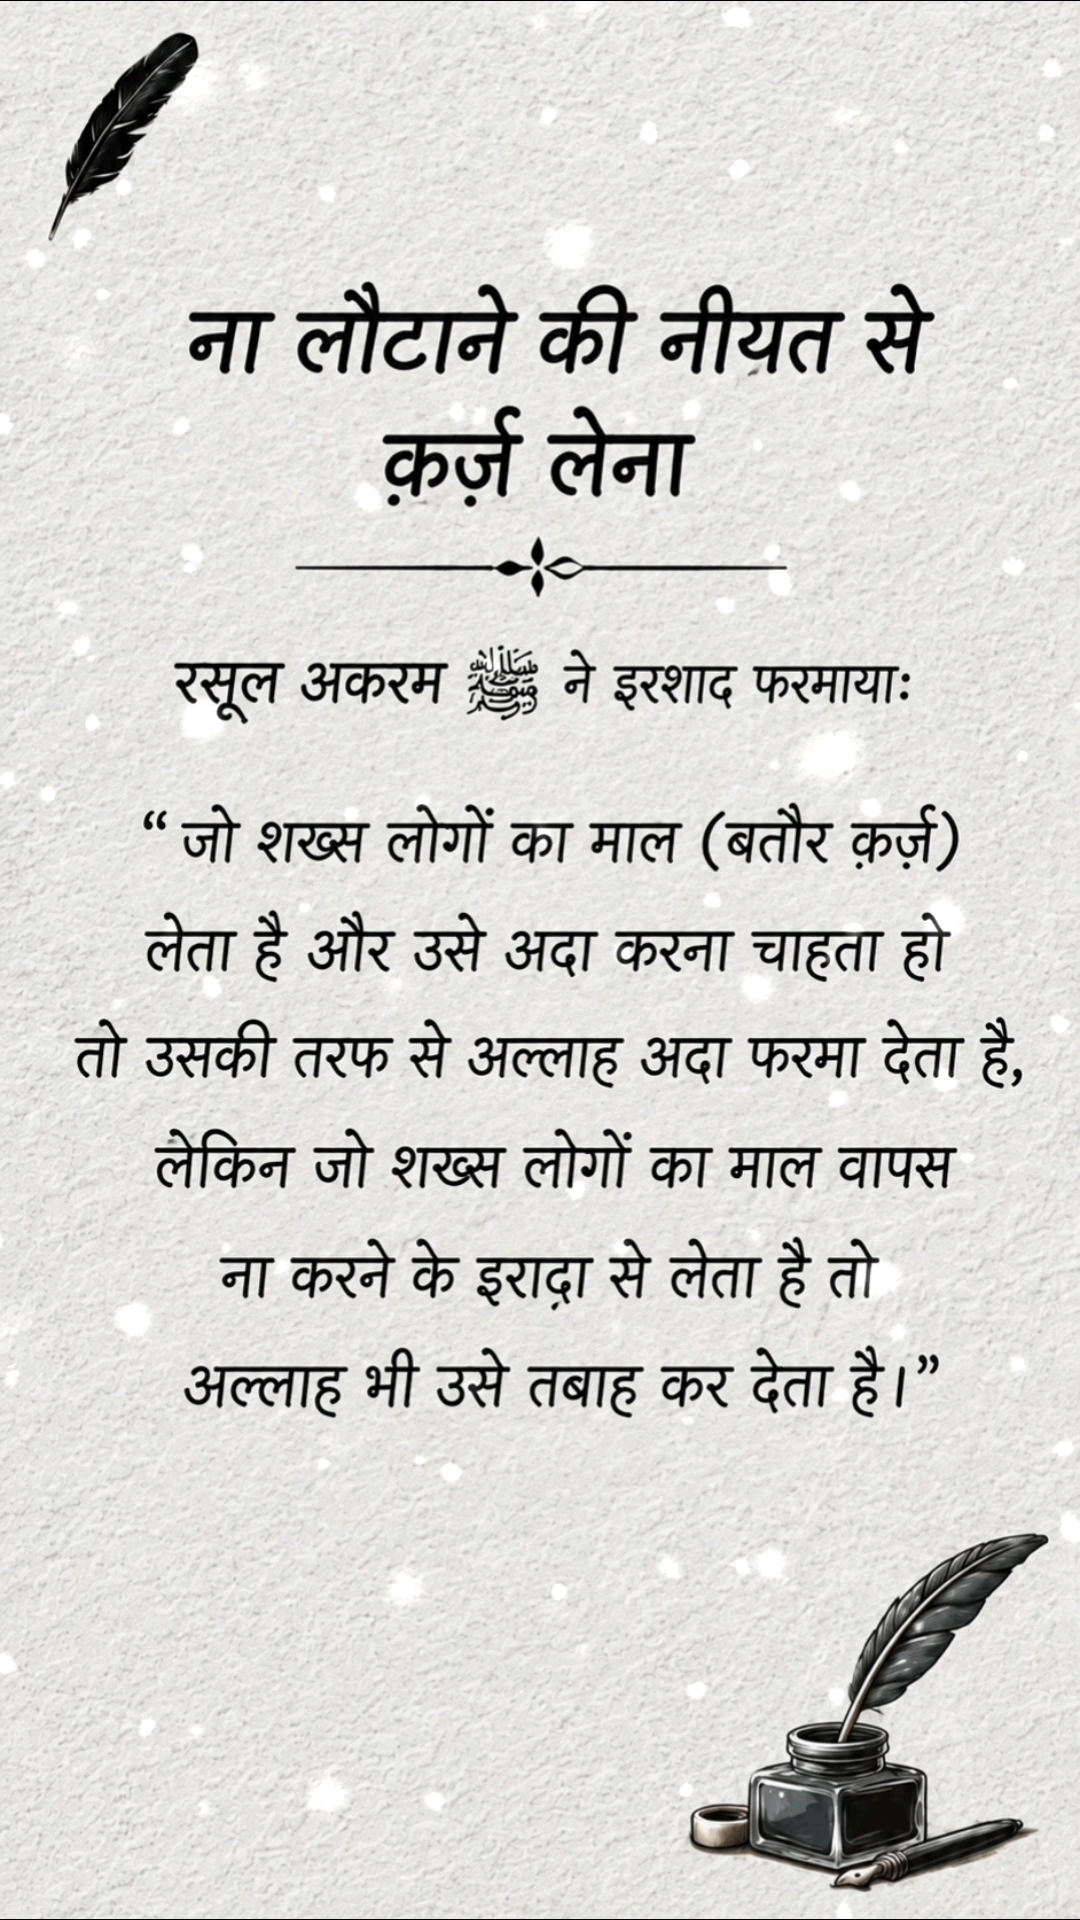 ना लौटाने की नीयत से
क़र्ज़ लेना
रसूल अकरम ﷺ ने इरशाद फरमायाः
“ जो शख्स लोगों का माल (बतौर क़र्ज़)
लेता है और उसे अदा करना चाहता हो
तो उसकी तरफ से अल्लाह अदा फरमा देता है,
लेकिन जो शख्स लोगों का माल वापस
ना करने के इराद़ा से लेता है तो
अल्लाह भी उसे तबाह कर देता है।”